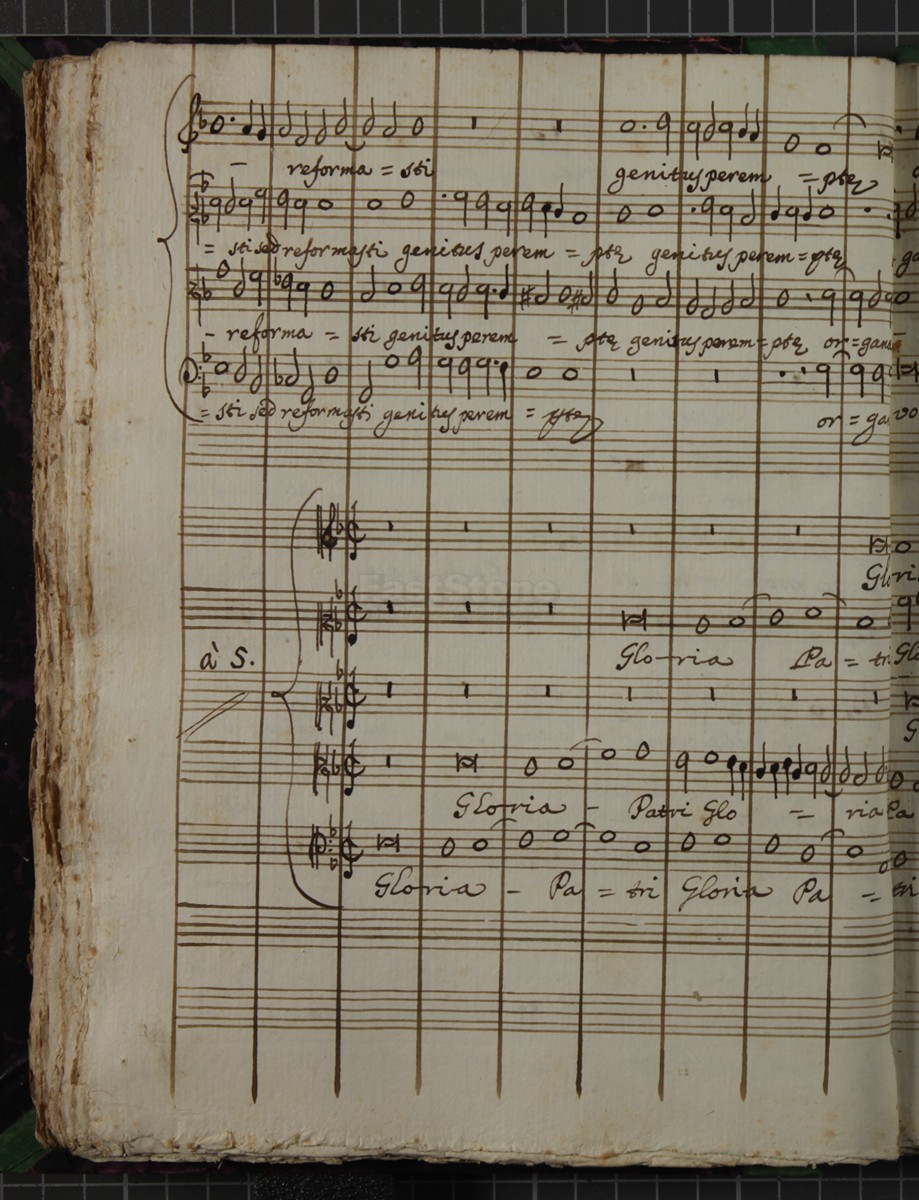 – reforma = sti genitus perem = ptę
= sti sed reformasti genitus perem = ptę genitus perem = ptę
– reforma = sti genitus perem = ptę genitus perem = ptę or = gana
= sti sed reformasti genitus perem = ptę or = ga
FastStone
Glori
à 5. Glo–ria Pa = tri
Gloria – Patri Glo = ria Pa
Gloria – Pa = tri Gloria Pa = tri